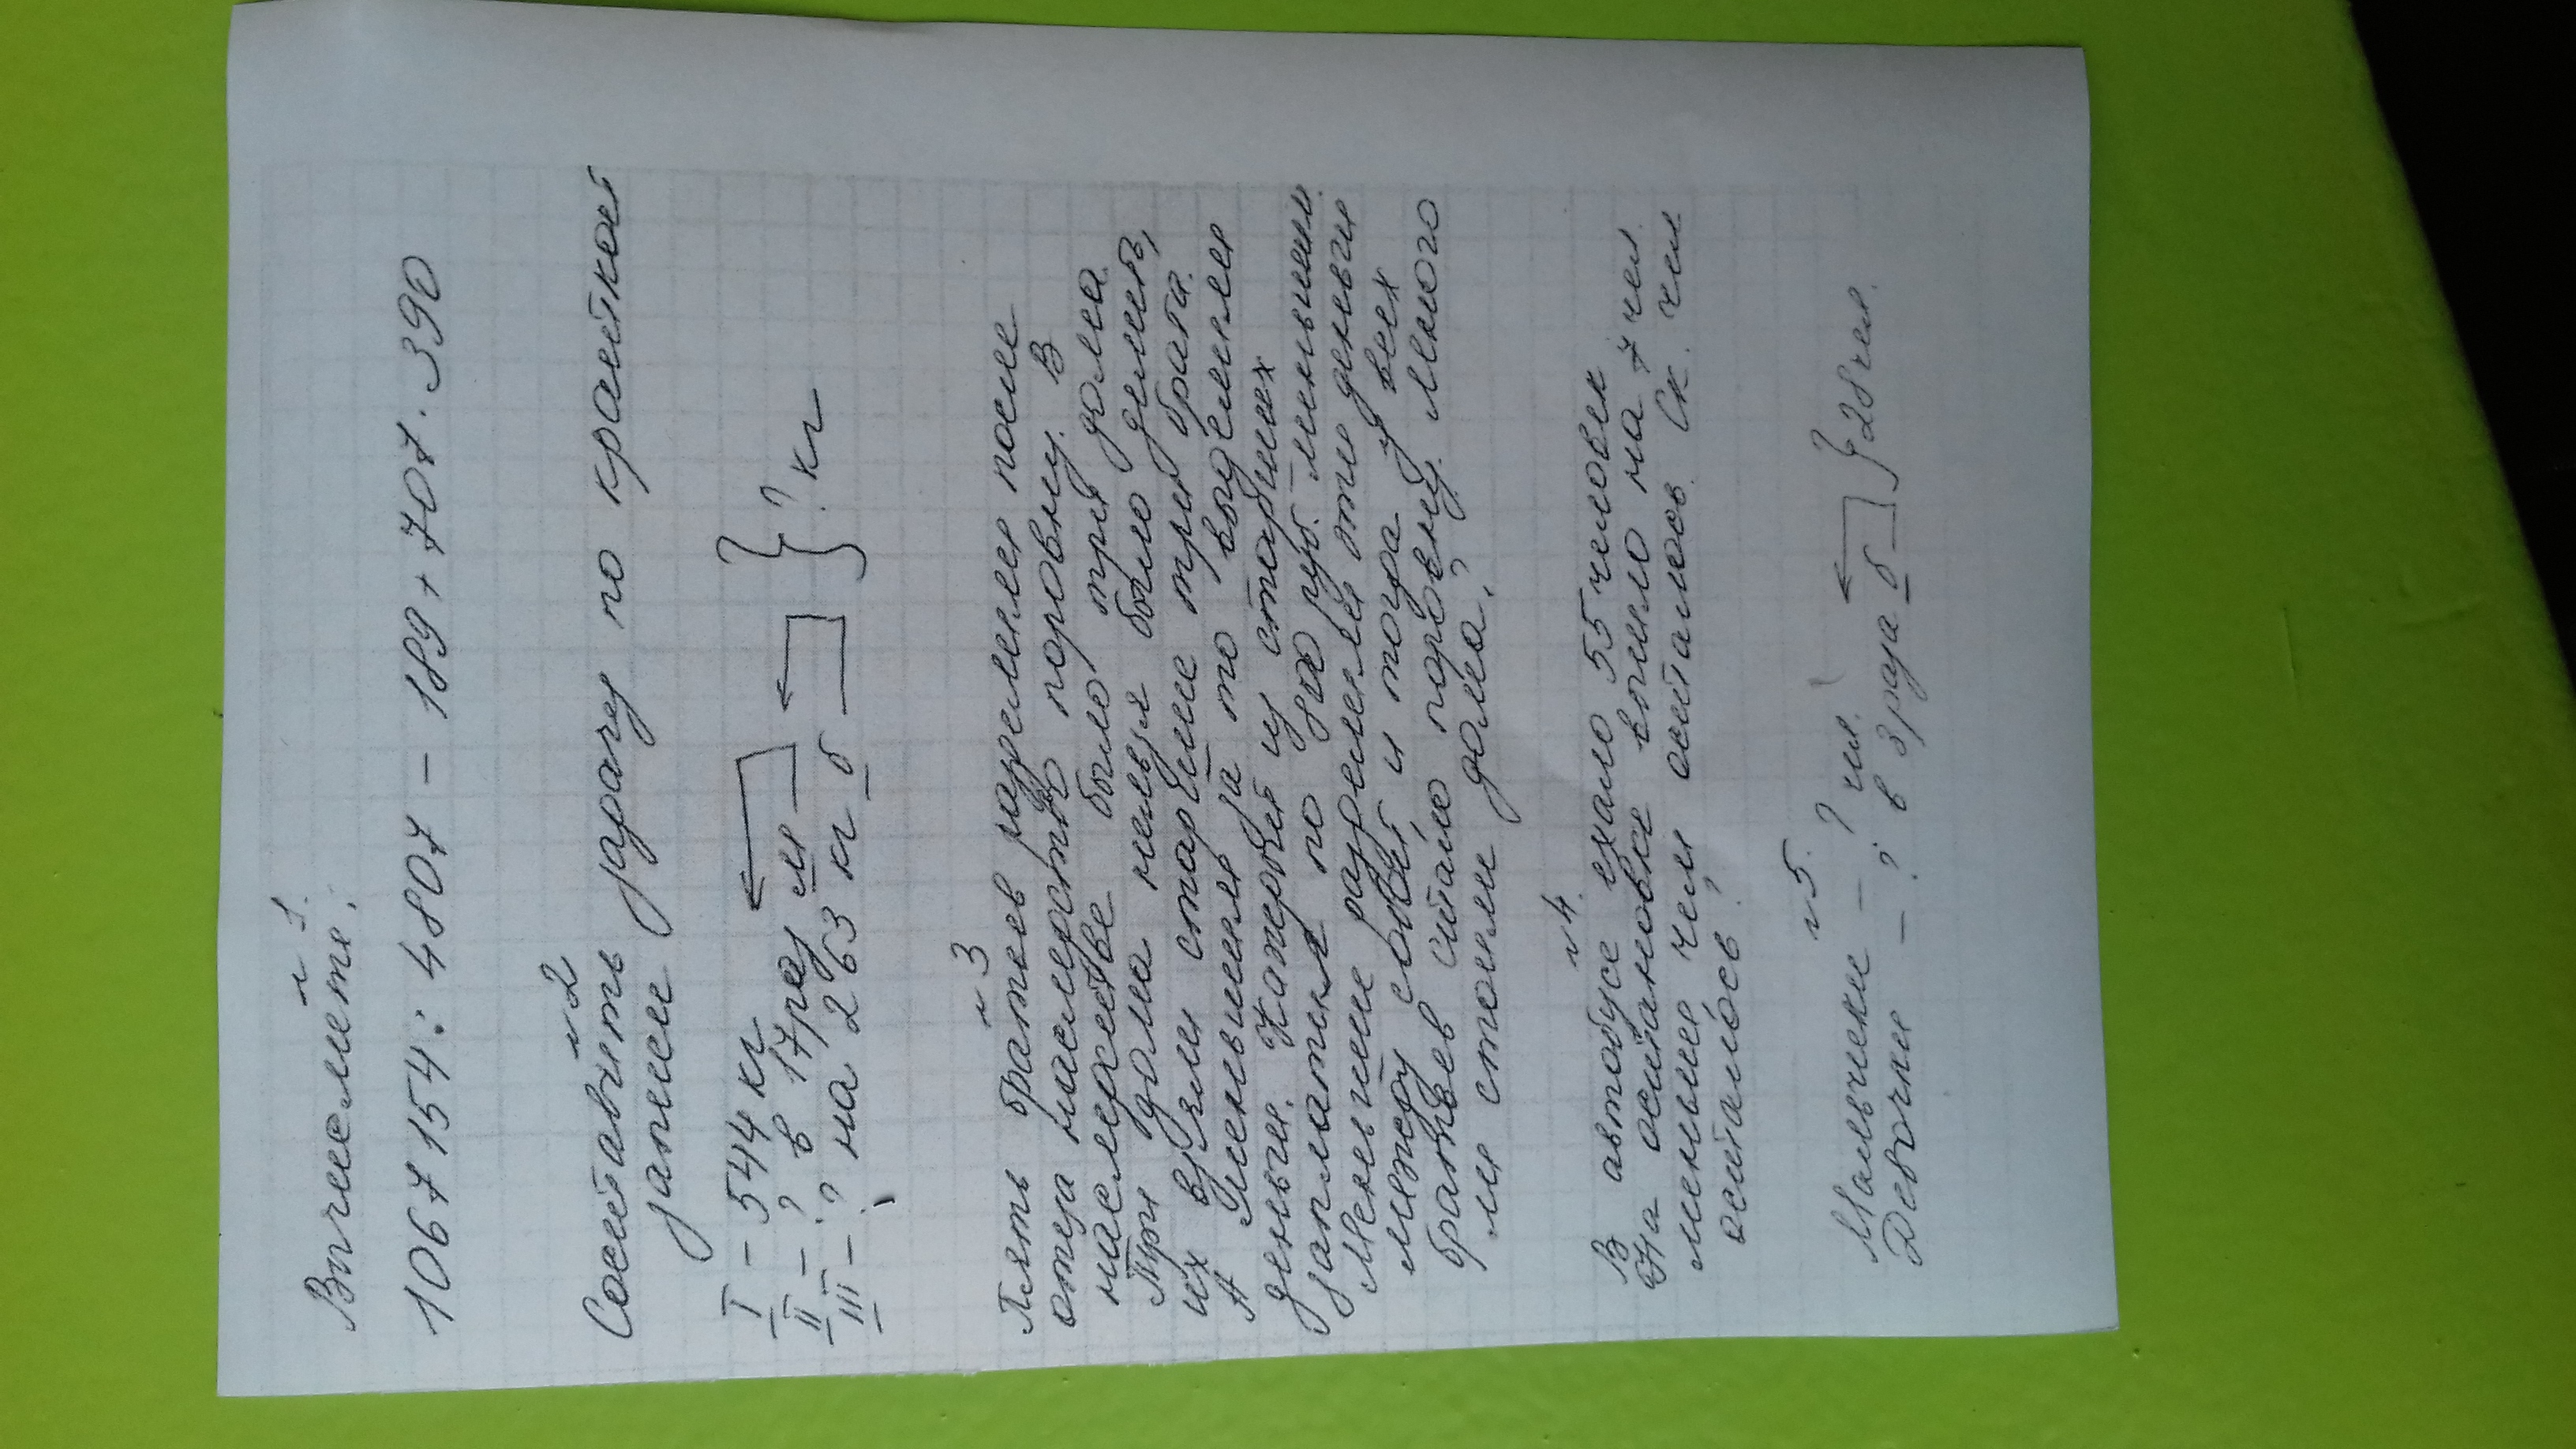 № 1.
Вычислить:
1067154 : 4807 - 189 + 707 · 390
№ 2
Составить задачу по краткой
записи
I - 544 кг
II - ? в 17 раз м } ? кг
III - ? на 263 кг б
№ 3
Пять братьев разделили после
отца наследство поровну. В
наследстве было три дома.
Три дома нельзя было делить,
их взяли старшие три брата.
А меньшим за то выделили
деньги. Каждый из старших
заплатил по 800 руб. меньшим.
Меньшие разделили эти деньги
между собой, и тогда у всех
братьев стало поровну. Много
ли стоили дома?
№ 4.
В автобусе ехало 55 человек
На остановке вышло на 7 чел.
меньше чем осталось. Ск. чел
осталось?
№ 5.
Мальчики - ? чел.
Девочки - ? в 3 раза б } 28 чел.